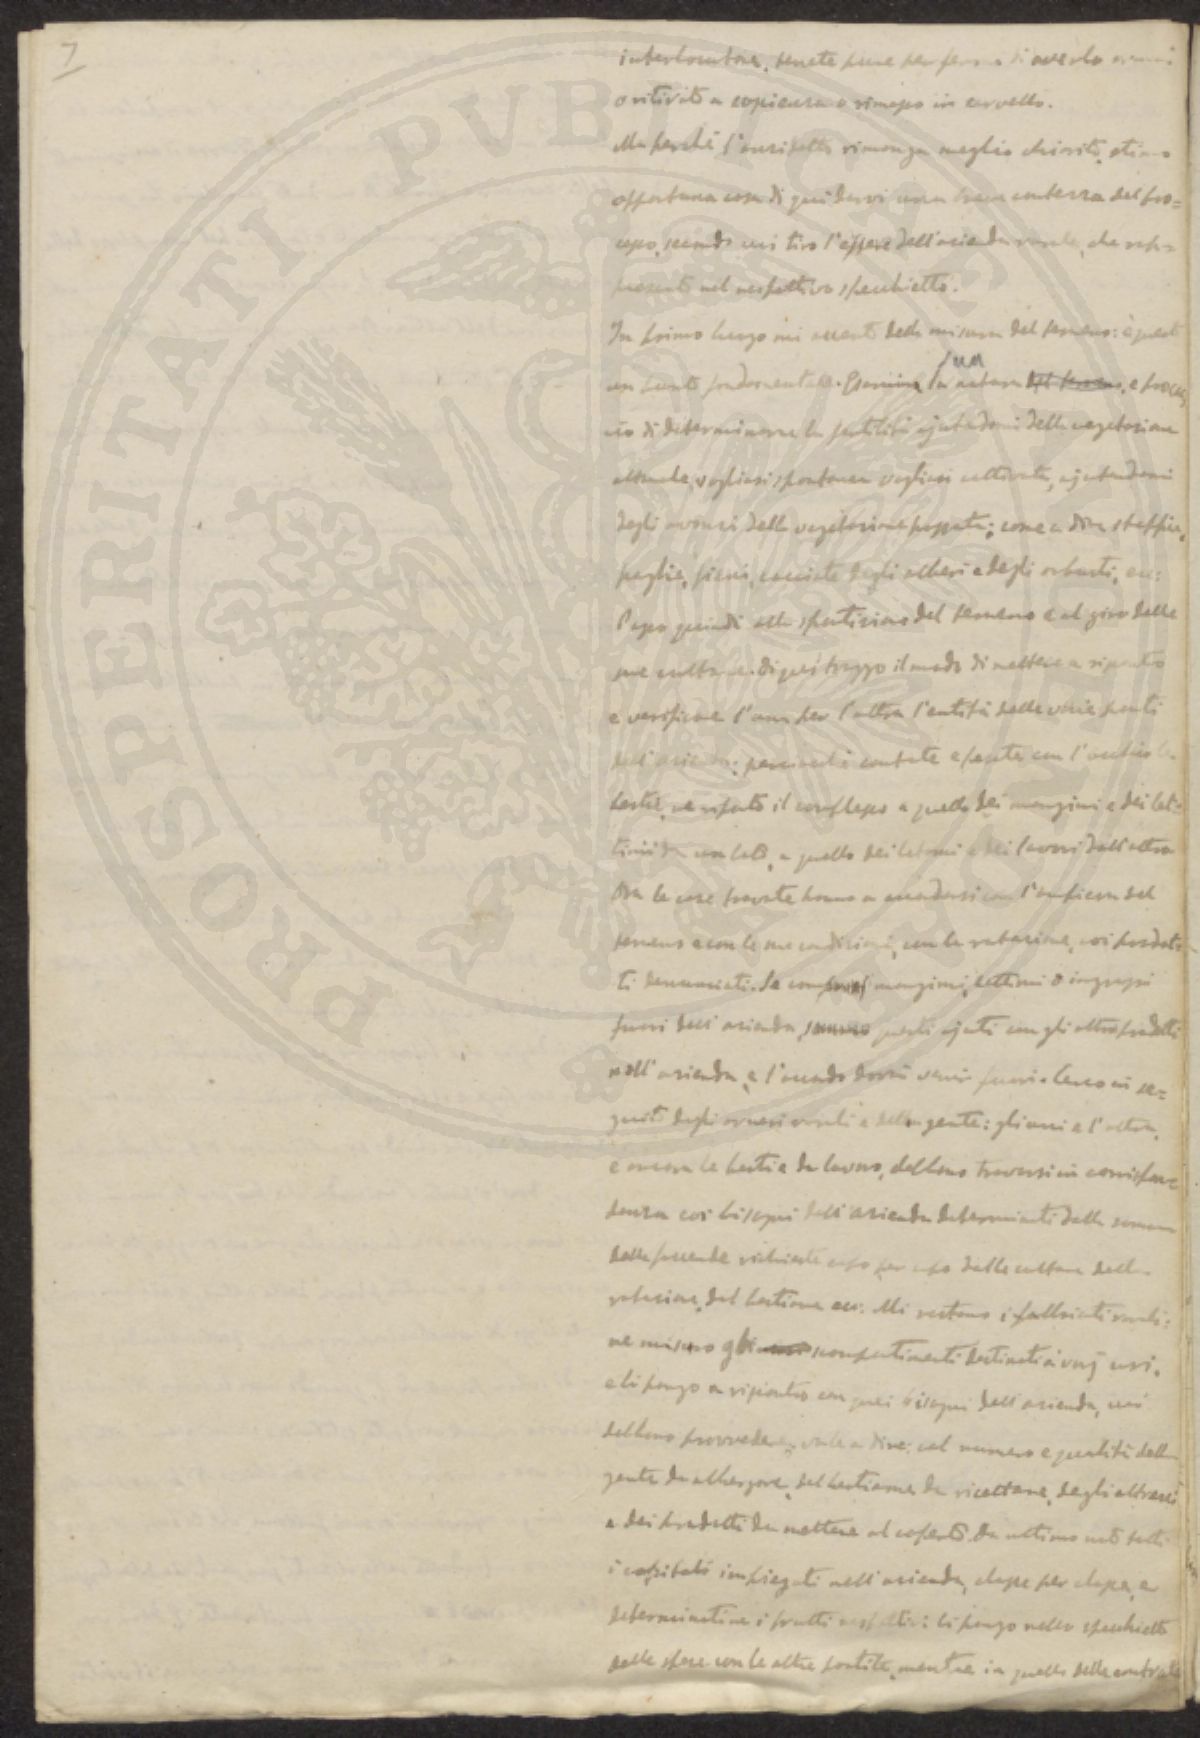 7
interlocutore, tenete pure per fermo di averlo
o ritirato a coscienza o rimesso in cervello.
Ma perché l'anzidetto rimanga meglio chiarito, stimo
opportuna cosa di qui darvi una breve contezza del pro=
cesso, secondo cui tiro l'essere dell'azienda rurale, che rap=
presento nel rispettivo specchietto.
In primo luogo mi accerto della misura del terreno: è questo
un punto fondamentale. Esamino la sua natura del terreno, e procac=
cio di determinarne la fertilità ajutandomi della vegetazione
attuale, vogliasi spontanea vogliasi coltivata, ajutandomi
degli avanzi della vegetazione passata; come a dire stoppie,
paglie, fieni, cacciate degli alberi e degli arbusti, ecc:
Passo quindi allo spartizione del terreno e al giro delle
sue colture. Di qui traggo il modo di mettere a riscontro
e verificare l'una per l'altra l'entità delle varie parti
dell'azienda: perciocché contate e pesate con l'occhio le
bestie, ne riporto il complesso a quello dei mangimi e dei let=
timi da un lato, a quello dei letami e dei lavori dall'altro
Ora le cose trovate hanno a accordarsi con l'ampiezza del
terreno e con le sue condizioni, con la rotazione, coi prodot=
ti denunciati. Se mangimi, lettimi o ingrassi
fuori dell'azienda, questi ajuti con gli altri prodotti
nell'azienda, e l'accordo dovrà venir fuori. Cerco in se=
guito degli arnesi rurali e della gente: gli uni e l'altra,
e ancora le bestie da lavoro, debbono trovarsi in corrispon=
denza coi bisogni dell'azienda determinati dalla somma
delle faccende richieste capo per capo dalle colture della
rotazione, del bestiame ecc: Mi restano i fabbricati rurali:
ne misuro gli usi scompartimenti destinati a varj usi,
e li pongo a riscontro con quei bisogni dell'azienda, cui
debbono provvedere, vale a dire: col numero e qualità della
gente da albergare, del bestiame da ricettare, degli attrezzi
e dei prodotti da mettere al coperto. Da ultimo noto tutti
i capitali impiegati nell'azienda, classe per classe, e
determinatine i frutti rispettivi: li pongo nello specchietto
delle spese con le altre partite, mentre in quello delle entrate